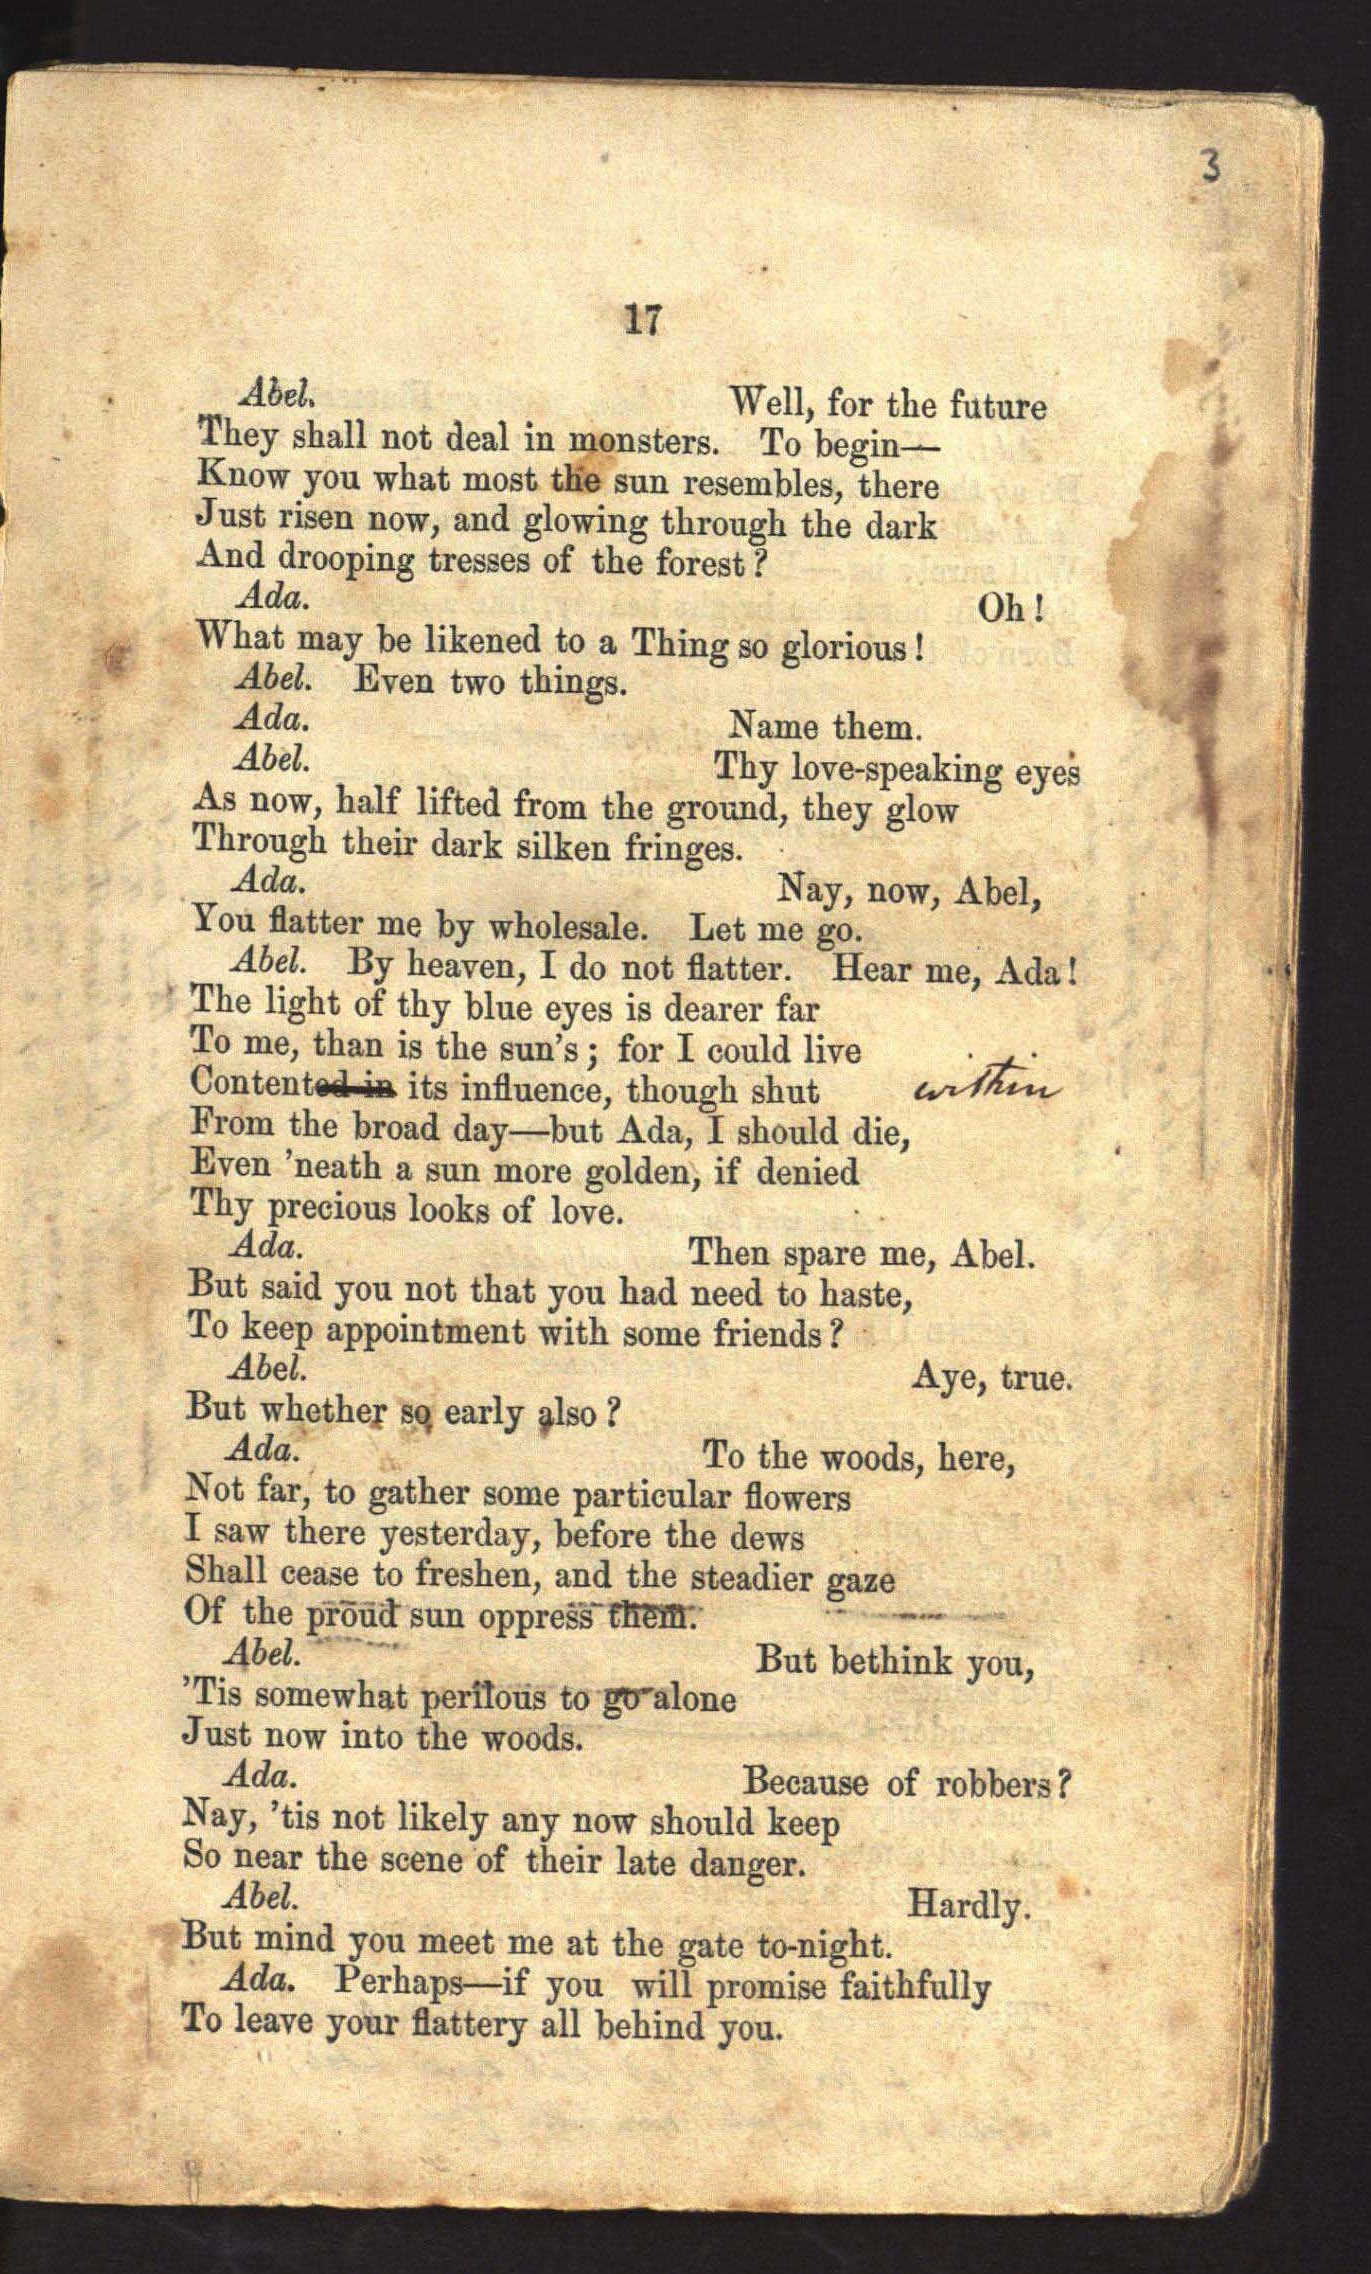 3
17
Abel. Well, for the future
They shall not deal in monsters. To begin—
Know you what most the sun resembles, there
Just risen now, and glowing through the dark
And drooping tresses of the forest?
Ada. Oh!
What may be likened to a Thing so glorious!
Abel. Even two things.
Ada. Name them.
Abel. Thy love-speaking eyes
As now, half lifted from the ground, they glow
Through their dark silken fringes.
Ada. Nay, now, Abel,
You flatter me by wholesale. Let me go.
Abel. By heaven, I do not flatter. Hear me, Ada!
The light of thy blue eyes is dearer far
To me, than is the sun's; for I could live
Contented in its influence, though shut within
From the broad day—but Ada, I should die,
Even 'neath a sun more golden, if denied
Thy precious looks of love.
Ada. Then spare me, Abel.
But said you not that you had need to haste,
To keep appointment with some friends?
Abel. Aye, true.
But whether so early also?
Ada. To the woods, here,
Not far, to gather some particular flowers
I saw there yesterday, before the dews
Shall cease to freshen, and the steadier gaze
Of the proud sun oppress them.
Abel. But bethink you,
'Tis somewhat perilous to go alone
Just now into the woods.
Ada. Because of robbers?
Nay, 'tis not likely any now should keep
So near the scene of their late danger.
Abel. Hardly.
But mind you meet me at the gate to-night.
Ada. Perhaps—if you will promise faithfully
To leave your flattery all behind you.